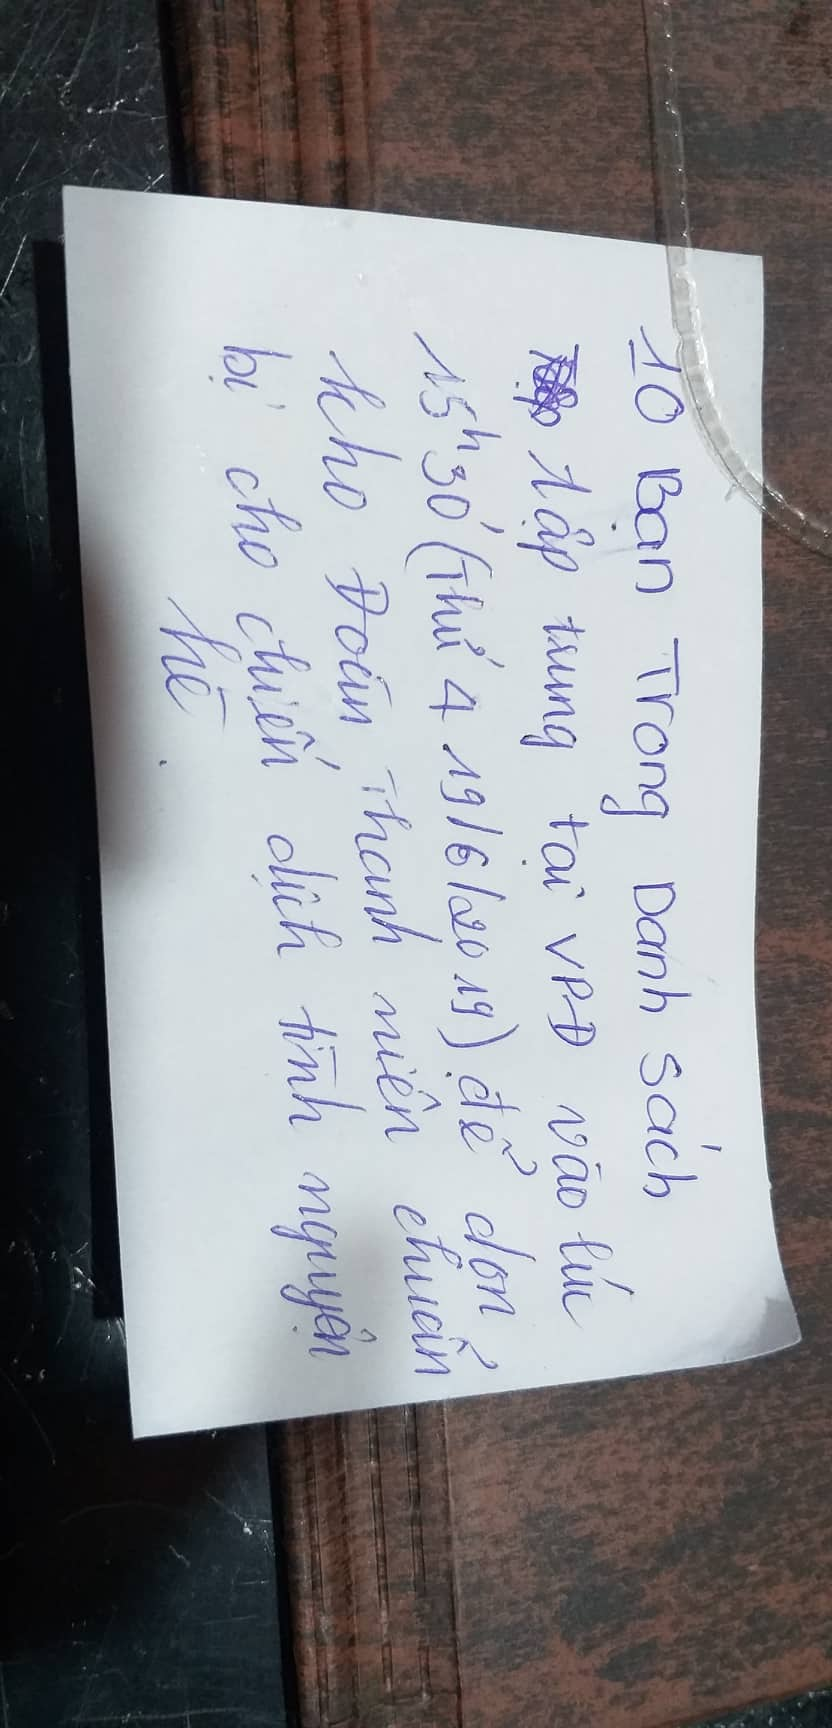 10 Bạn Trong Danh sách
Tập trung tại VPĐ vào lúc
15h30' (Thứ 4 19/6/2019) để dọn
kho Đoàn Thanh niên chuẩn
bị cho chiến dịch tình nguyện
hè.